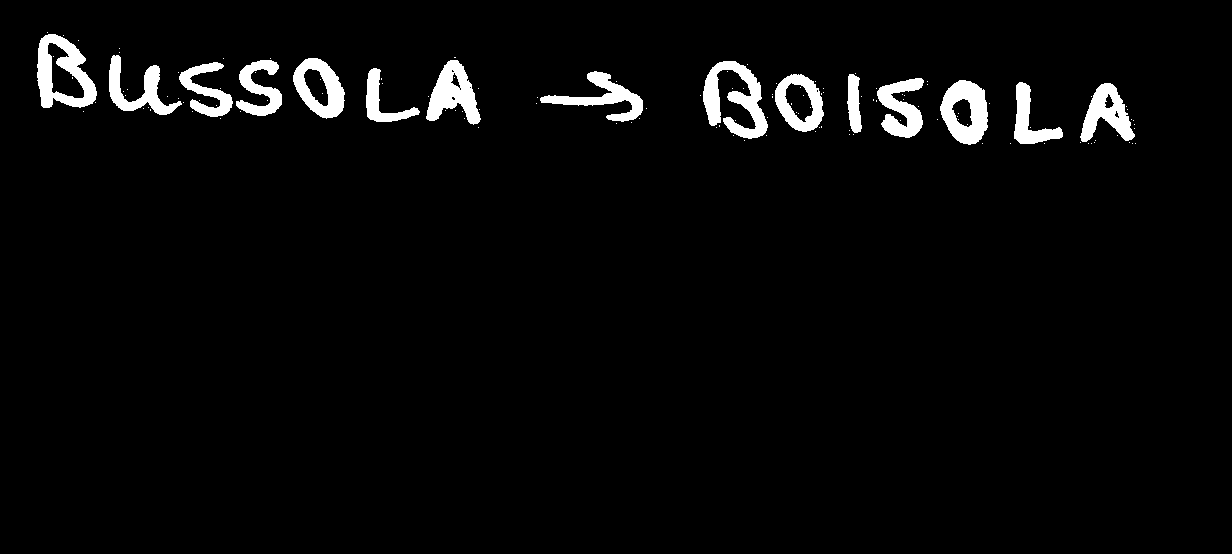 BUSSOLA → BOISOLA